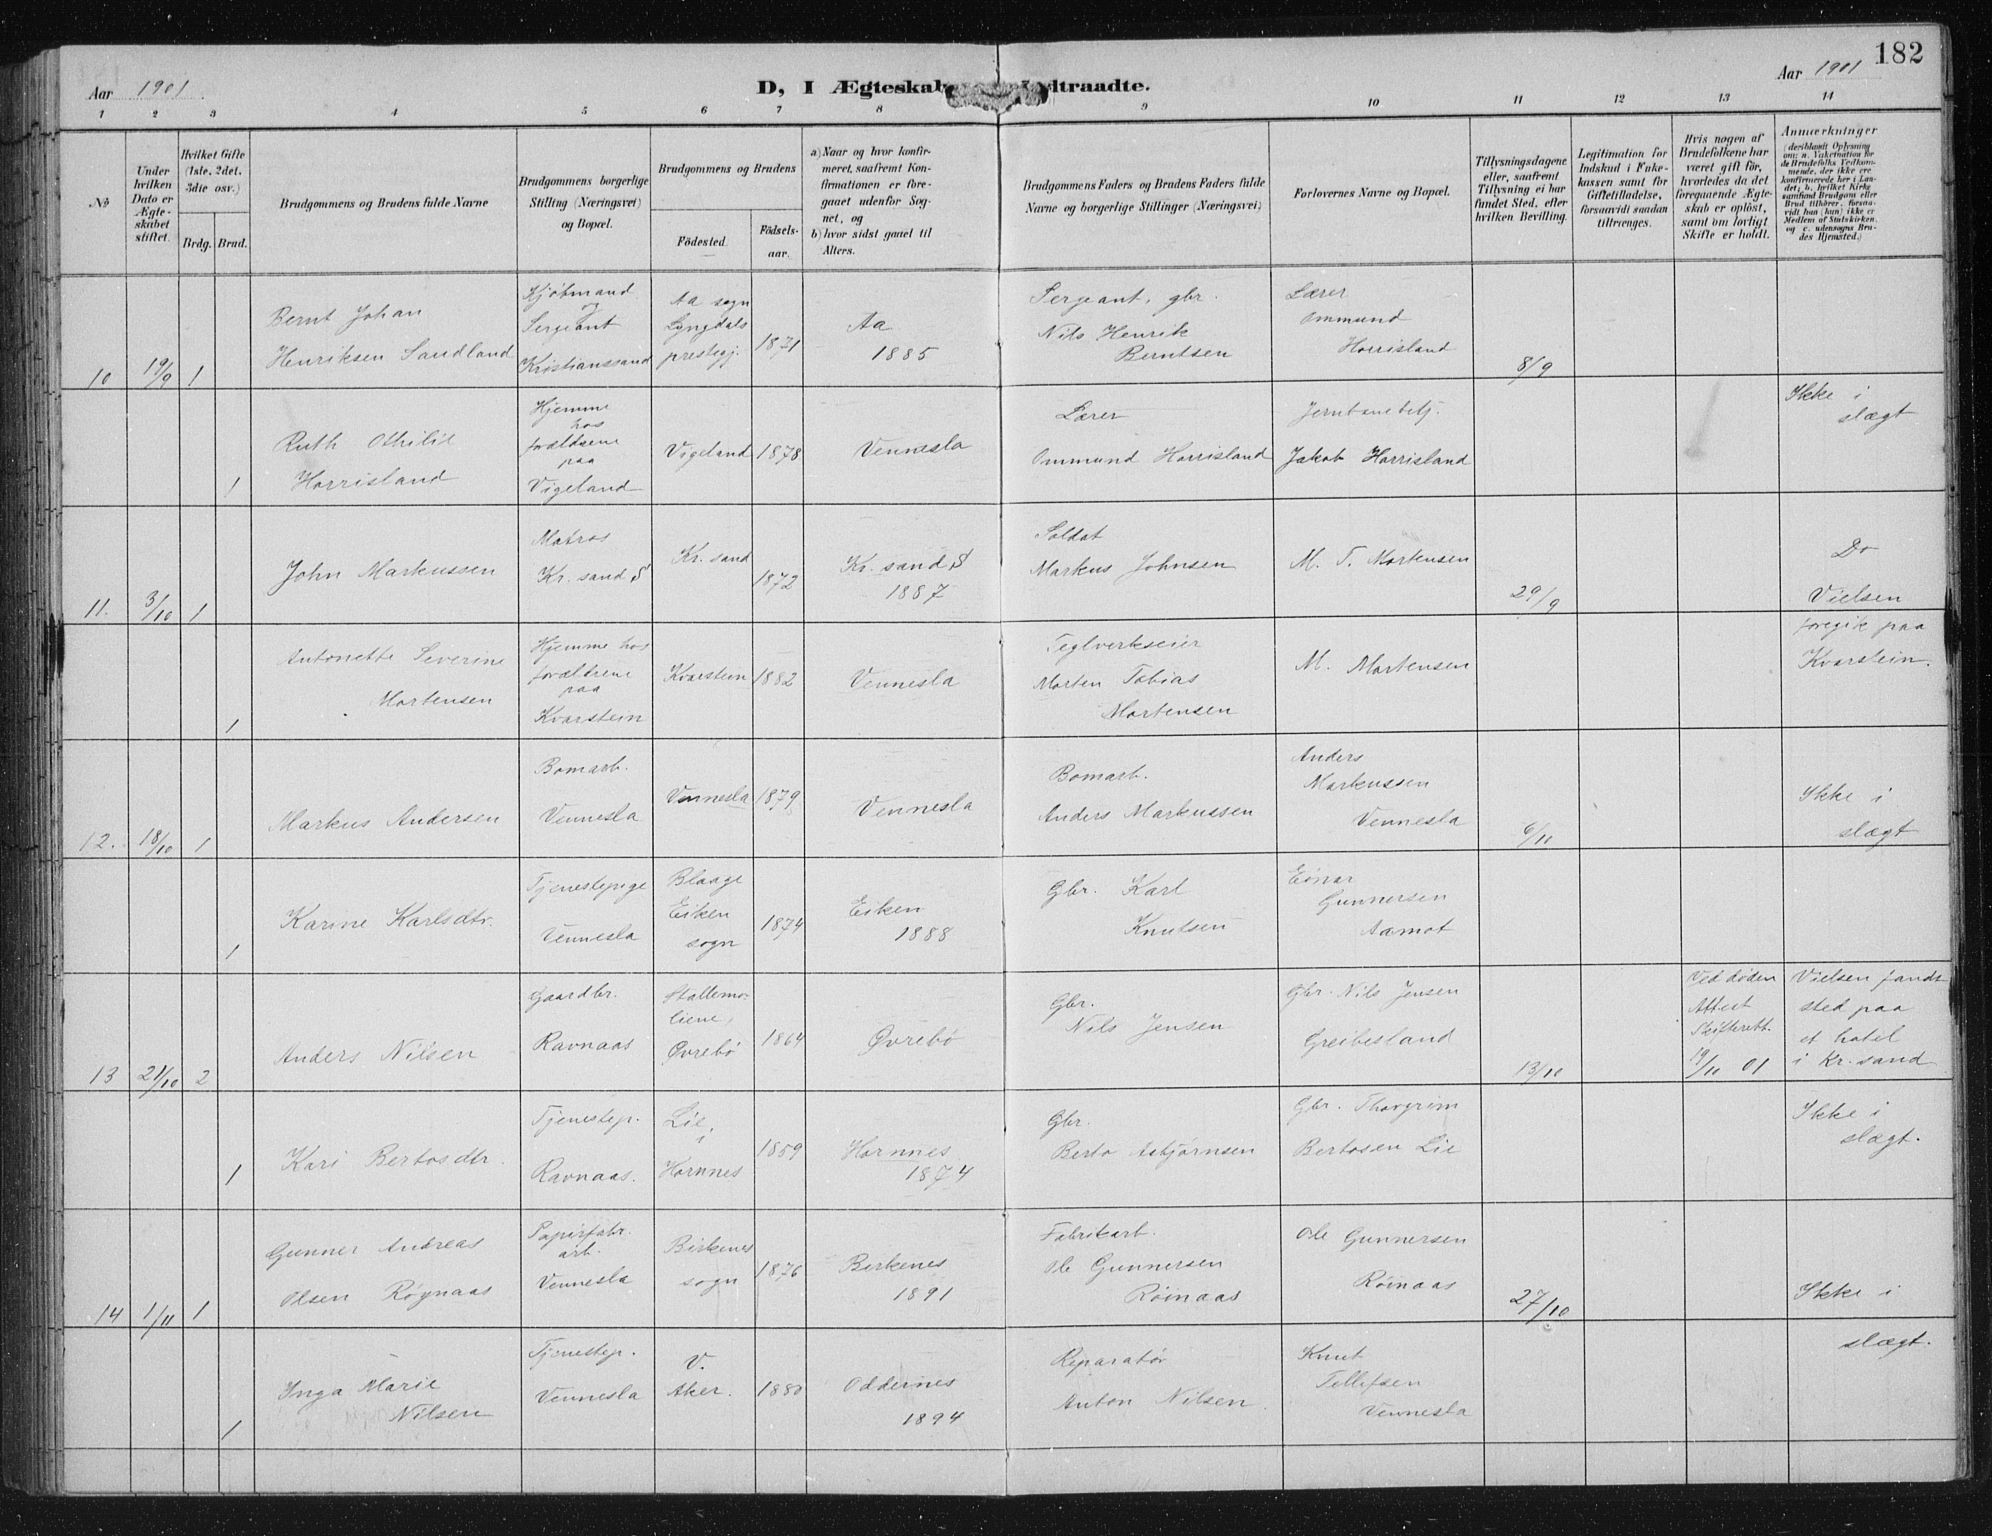 182
Aar 1901
D, I Ægteskab Indtraadte.
Aar 1901
1 2 3 4 5 6 7 8 9 10 11 12 13 14
No
Under hvilken Dato er Ægteskabet stiftet.
Hvilket Gifte (1ste, 2det, 3die osv.)
Brdg. Brud.
Brudgommens og Brudens fulde Navne
Brudgommens borgerlige Stilling (Næringsvei) og Bopæl.
Brudgommens og Brudens
Födested.
Födselsaar.
a) Naar og hvor konfirmeret, saafremt Konfirmationen er foregaaet udenfor Sognet, og
b) hvor sidst gaaet til Alters.
Brudgommens Faders og Brudens Faders fulde Navne og borgerlige Stillinger (Næringsvei)
Forlovernes Navne og Bopæl.
Tillysningsdagene eller, saafremt Tillysning ei har fundet Sted, efter hvilken Bevilling.
Legitimation for Indskud i Enkekassen samt for Giftetilladelse, forsaavidt saadan tiltrænges.
Hvis nogen af Brudefolkene har været gift för, hvorledes da det foregaaende Ægteskab er oplöst, samt om lovligt Skifte er holdt.
Anmærkninger
(deriblandt Oplysning om: a. Vakcination for de Brudefolks Vedkommende, der ikke ere konfirmerede her i Landet; b. hvilket Kirkesamfund Brudgom eller Brud tilhörer, forsaavidt han (hun) ikke er Medlem af Statskirken, og c. udensogns Brudes Hjemsted.)
10 19/9 1
Bernt Johan
Henriksen Sandland
Kjøbmand
og
Sergeant
Kristianssand
Aa sogn
Lyngdals
prestegj.
1871
Aa
1885
Sergeant, gbr.
Nils Henrik
Berntsen
Lærer
Ommund
Horrisland
8/9
1
Ruth Othilie
Horrisland
Hjemme
hos
forældrene
paa
Vigeland
Vigeland
1878
Vennesla
Lærer
Ommund Horrisland
Jernbanebetj.
Jakob Horrisland
Ikke i
slægt
11. 3/10 1
John Markussen
Matros
Kr. sand S
Kr. sand
1872
Kr. sand S
1887
Soldat
Markus Johnsen
M. T. Mortensen
29/9
Do
Vielsen
foregik paa
Kvarstein.
1
Antonette Severine
Mortensen
Hjemme hos
forældrene
paa
Kvarstein
Kvarstein
1882
Vennesla
Teglverkseier
Morten Tobias
Mortensen
M. Mortensen
12. 18/10 1
Markus Andersen
Bomarb.
Vennesla
Vennesla
1879
Vennesla
Bomarb.
Anders Markussen
Anders
Markussen
Vennesla
6/10
Ikke i
slægt
1
Karine Karlsdtr.
Tjenestepige
Vennesla
Blaage
Eiken
sogn
1874
Eiken
1888
Gbr. Karl
Knutsen
Einar
Gunnersen
Aamot
13 21/10 2
Anders Nilsen
Gaardbr.
Ravnaas
Stallemo-
liene,
Øvrebö
1864
Øvrebö
Gbr.
Nils Jensen
Gbr. Nils Jensen
Greibesland
13/10
Ved døden
Attest
Skifterett.
19/10 01
Vielsen fandt
sted paa
et hotel
i Kr. sand
1
Kari Bertosdtr.
Tjenestep.
Ravnaas.
Lie,
i
Hornnes
1859
Hornnes
1874
Gbr.
Berto Asbjørnsen
Gbr. Thorgrim
Bertosen Lie
Ikke i
slægt.
14 1/11 1
Gunner Andreas
Olsen Røynaas
Papirfabr.
arb.
Vennesla
Birkenes
sogn
1876
Birkenes
1891
Fabrikarb.
Ole Gunnersen
Røinaas
Ole Gunnersen
Røinaas
27/10
Ikke i
slægt.
1
Inga Marie
Nilsen
Tjenestep.
Vennesla
V.
Aker.
1880
Oddernes
1894
Reparatør
Anton Nilsen.
Knut
Tellefsen
Vennesla